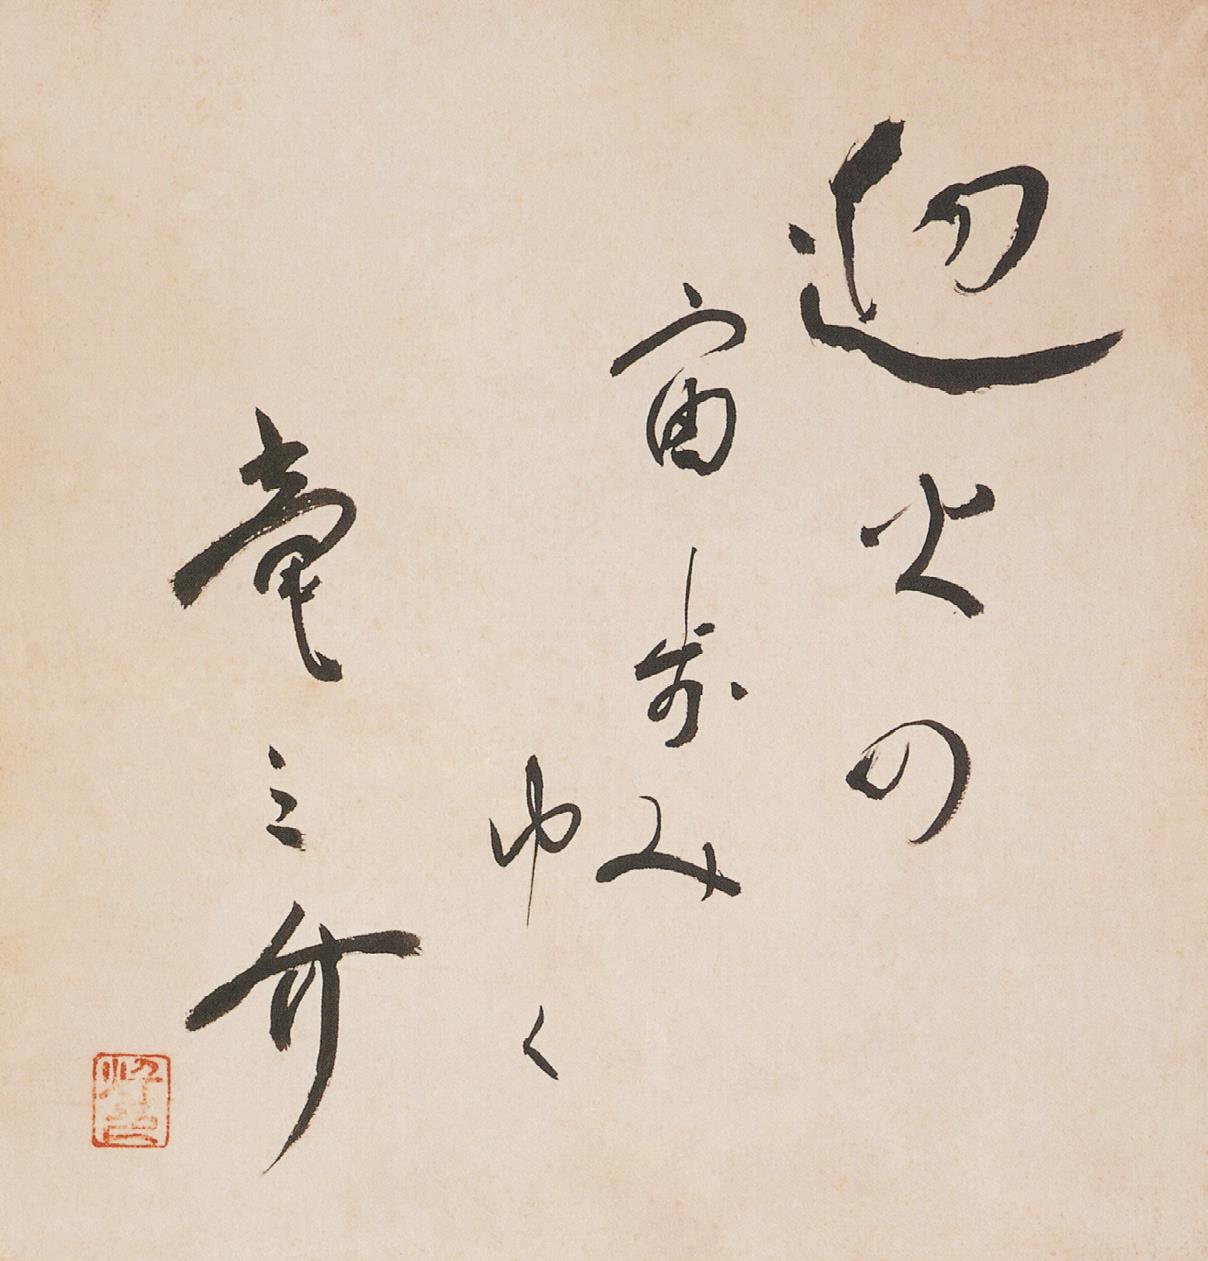 迎火の
宙歩み
ゆく
竜之介